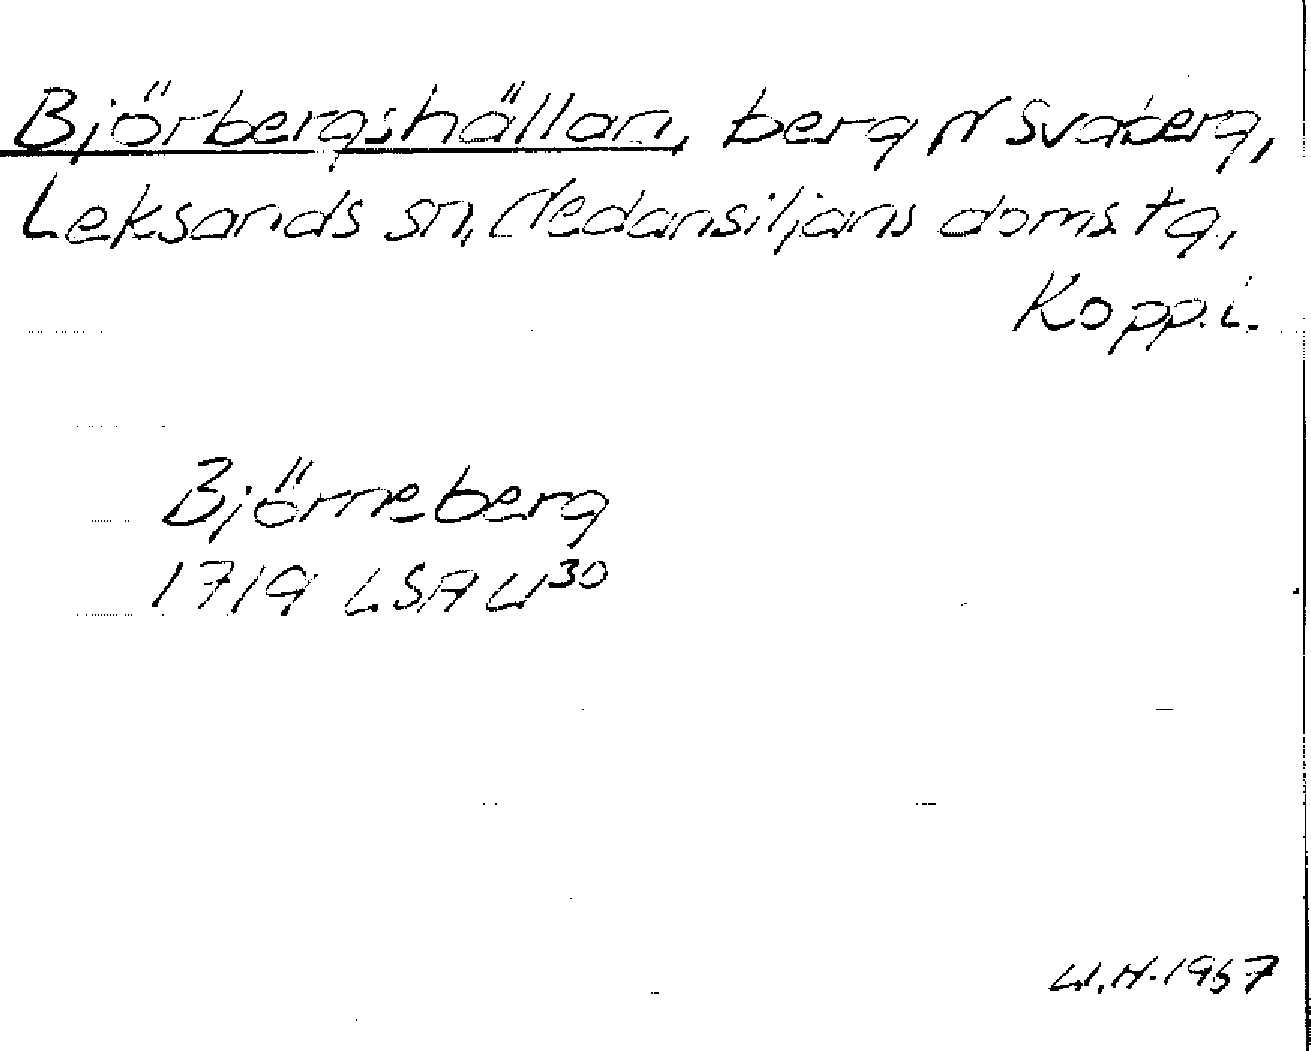 Björbergshällan, berg N Svaberg,
Leksands sn, Nedansiljans doms. tg,
Kopp. l.
Björneberg
1719 LSA W30
W.H. 1967